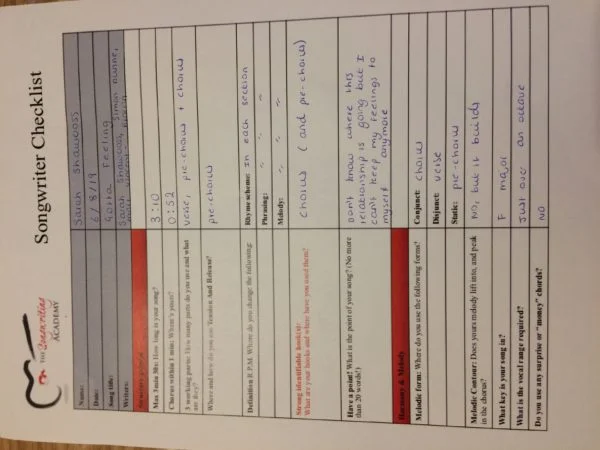 THE Songwriting
ACADEMY
Songwriter Checklist
Name: Sarah Shawcross
Date: 6/8/19
Song title: Gotta Feeling
Writers: Sarah Shawcross, Simon
Max 3min 30s: How long is your song? 3:10
Chorus within 1 min: Where's yours? 0:52
3 working parts: How many parts do you use and what
are they? verse, pre-chorus + chorus
Where and how do you use Tension And Release? pre-chorus
Definition R.P.M. Where do you change the following:
Rhyme scheme: In each section
Phrasing: " " "
Melody: " " "
Strong identifiable hook(s):
What are your hooks and where have you used them?
chorus (and pre-chorus)
Have a point! What is the point of your song? (No more
than 20 words!)
Don't know where this
relationship is going but I
can't keep my feelings to
myself anymore
Harmony & Melody
Melodic form: Where do you use the following forms?
Conjunct: chorus
Disjunct: verse
Static: pre-chorus
Melodic Contour: Does yours melody lift into, and peak
in the chorus? NO, but it builds
What key is your song in? F major
What is the vocal range required? Just over an octave
Do you use any surprise or "money" chords? NO